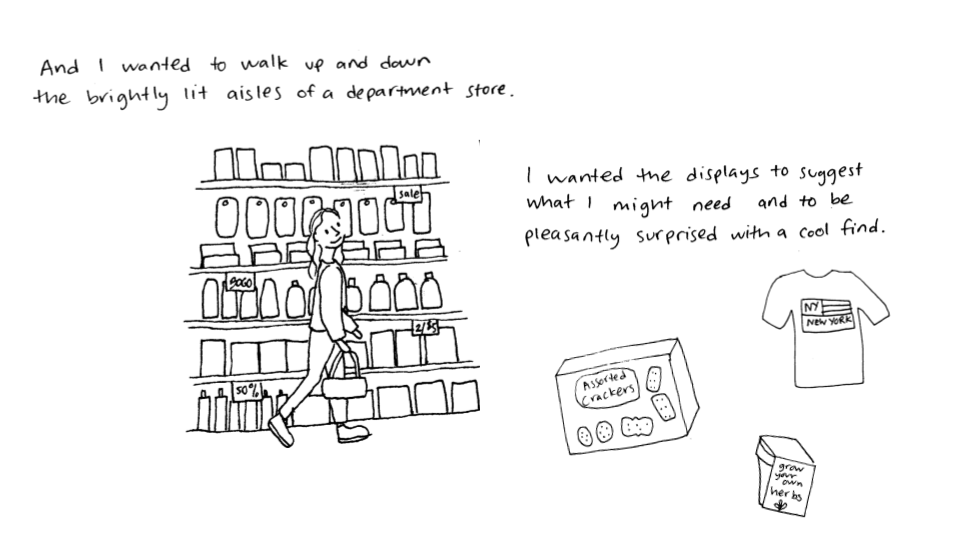 And I wanted to walk up and down
the brightly lit aisles of a department store.
I wanted the displays to suggest
what I might need and to be
pleasantly surprised with a cool find.
sale
BOGO
2/$5
50%
NY
NEW YORK
Assorted
Crackers
grow
your
own
herbs